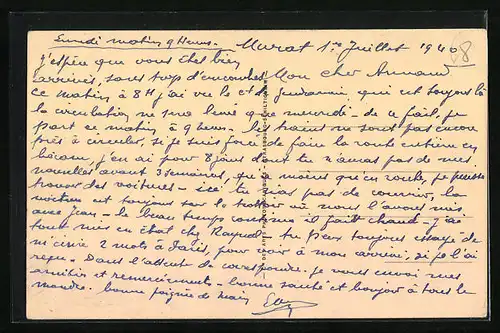 Lundi matin 9 Heures. - Murat 1er Juillet 1940
j'espère que vous êtes bien
arrivés, sans trop d'encombres Mon cher Armand
ce matin à 8H j'ai vu le de Gendarmerie, qui est toujours là
la circulation ne sera que mercredi - de ce fait, je
pars ce matin à 9 heures. les trains ne sont pas encore
près à circuler, si je suis forcé de faire la route entière en
bécane, j'en ai pour 8 jours donc tu n'auras pas de mes
nouvelles avant 3 semaines, qu'à moins qu'en route, je puisse
trouver des voitures - ici tu n'as pas de courrier, la
voiture est toujours sur le trottoir où nous l'avons mis
avec Jean - le beau temps continue il fait chaud - j'ai
tout mis en état chez Raynal - tu peux toujours essayer de
m'écrire 2 mots à Paris, pour voir à mon arrivée si je l'ai
reçu. Dans l'attente de correspondre. je vous envoi mes
amitiés et remerciements - bonne santé et bonjour à tout le
monde. bonne poignée de main